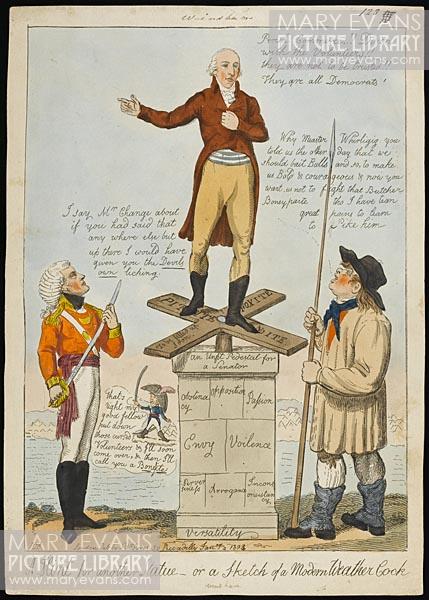 123
MARY EVANS
PICTURE LIBRARY
www.maryevans.com
they are not to be trusted
They are all Democrats!
Why Measter Whirligig you
told us the other day that we
should bait Bulls and so, to make
us Bold & courageous & now you
want us not to fight that Butcher
Boneyparte tho I have tean
great pains to learn
to Pike him
I say Mr Change about
if you had said that
any where else but
up there I would have
given you the Devils
own liching
That's
right my
good fellow
put down
those cursed
Volunteers & I'll soon
come over, & then I'll
call you a Bonrite
PITTITE
an Unfit Pedestal for
a Senator
Obstinacy
opposition
Passion
Envy
Voilence
Perverseness
Arrogance
Inconsistancy
Versatility
Piccadilly
for another Statue – or a Sketch of a Modern Weather Cock
MARY EVANS
PICTURE LIBRARY
www.maryevans.com